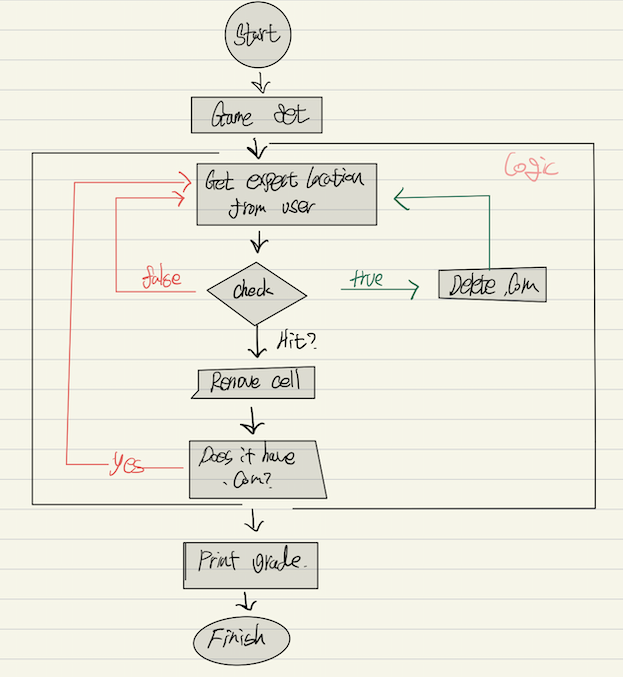 Start
Game Set
Logic
Get expect location
from user
false
Check
true
Delete .Com
Hit?
Remove cell
Does it have
.Com?
yes
Print grade.
Finish